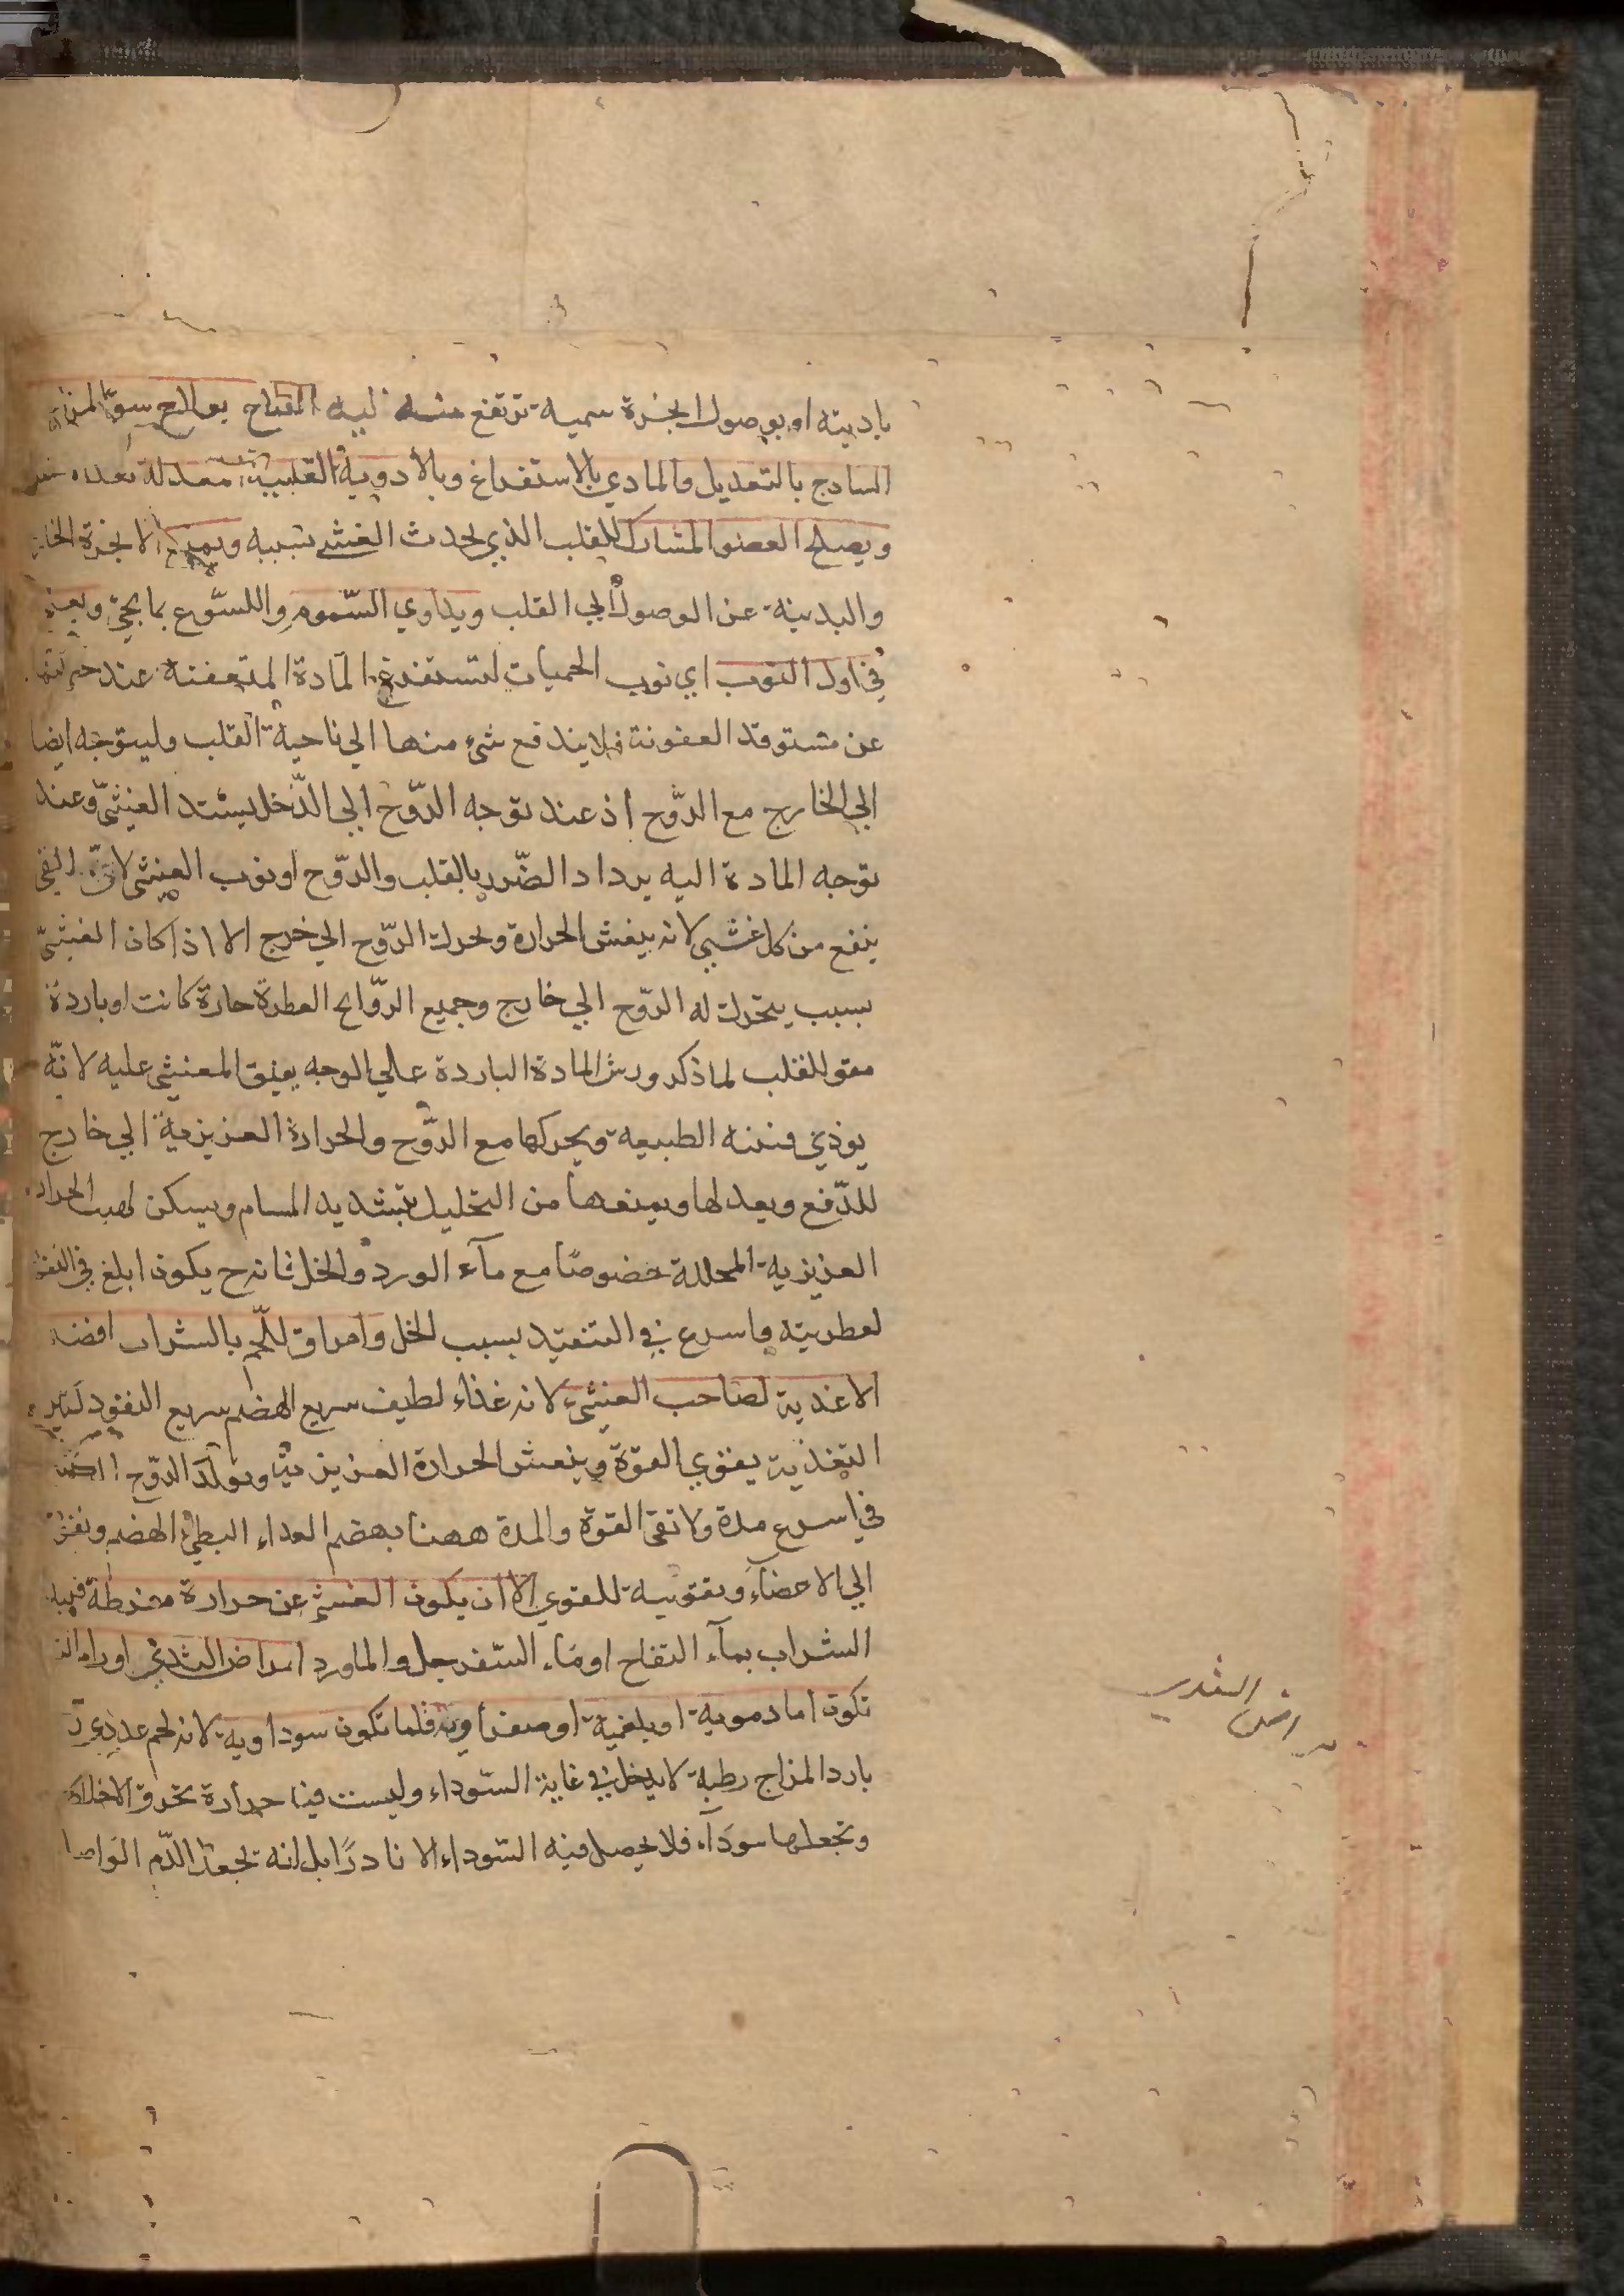 باديته او بوصول ابخرة سمية ترتفع منه اليه العلاج يعالج سوء المزاج
الساذج بالتعديل والمادي بالاستفراغ وبالادوية القلبية معدلة
ويصلح العضو المشارك للقلب الذي يحدث الغشي بسببه ويمنع الابخرة
والبدنية عن الوصول الي القلب ويداوي السموم واللسوع بما يجئ
في اول النوب اي نوب الحميات لتستفرغ المادة المتعفنة عند
عن مستوقد العفونة فلا يندفع شيء منها الي ناحية القلب وليتوجه ايضا
الي الخارج مع الروح اذ عند توجه الروح الي الداخل يشتد الغشي وعند
توجه المادة اليه يزداد الضرر بالقلب والروح او نوب الغشي لان القي
ينفع من كل غشي لانه ينعش الحرارة ويحرك الروح الي خرج الا اذا كان الغشي
بسبب يتحرك له الروح الي خارج وجميع الروايح العطرة حارة كانت او باردة
مقو للقلب لما ذكر ورش المادة الباردة علي الوجه يفيق المغشي عليه لانه
يوذي فننه الطبيعة ويحركها مع الروح والحرارة الغريزية الي خارج
للدفع ويعدلها ويمنعها من التحليل بتشديد المسام ويسكن لهب الحرارة
الغريزية المحللة خصوصا مع مآء الورد والخل فانه ح يكون ابلغ في
لعطريته واسرع في التنفيد بسبب الخل وامراق اللحم بالشراب افضل
الاغدية لصاحب الغشي لانه غذاء لطيف سريع الهضم سريع النفود كثير
التغذية يقوي القوة وينعش الحرارة الغريزية ويولد الروح
في اسرع مدة ولا تفي القوة والمدة ههنا بهضم الغداء البطئ الهضم ونفوذه
الي الاعضآء وتقويه للقوي الا ان يكون الغشي عن حرارة مفرطة
الشراب بمآء التفاح او مآء السفرجل والماورد امراض الثدي اورامه
تكون اما دموية او بلغمية او صفراوية قلما تكون سوداوية لانه لحم غددي
بارد المزاج رطبة لا يدخل في غاية السوداء وليست فيها حرارة تحرق الاخلاط
وتجعلها سودآء فلا يحصل فيه السوداء الا نادرا بل انه يجعل الدم الواصل
امراض الثدي